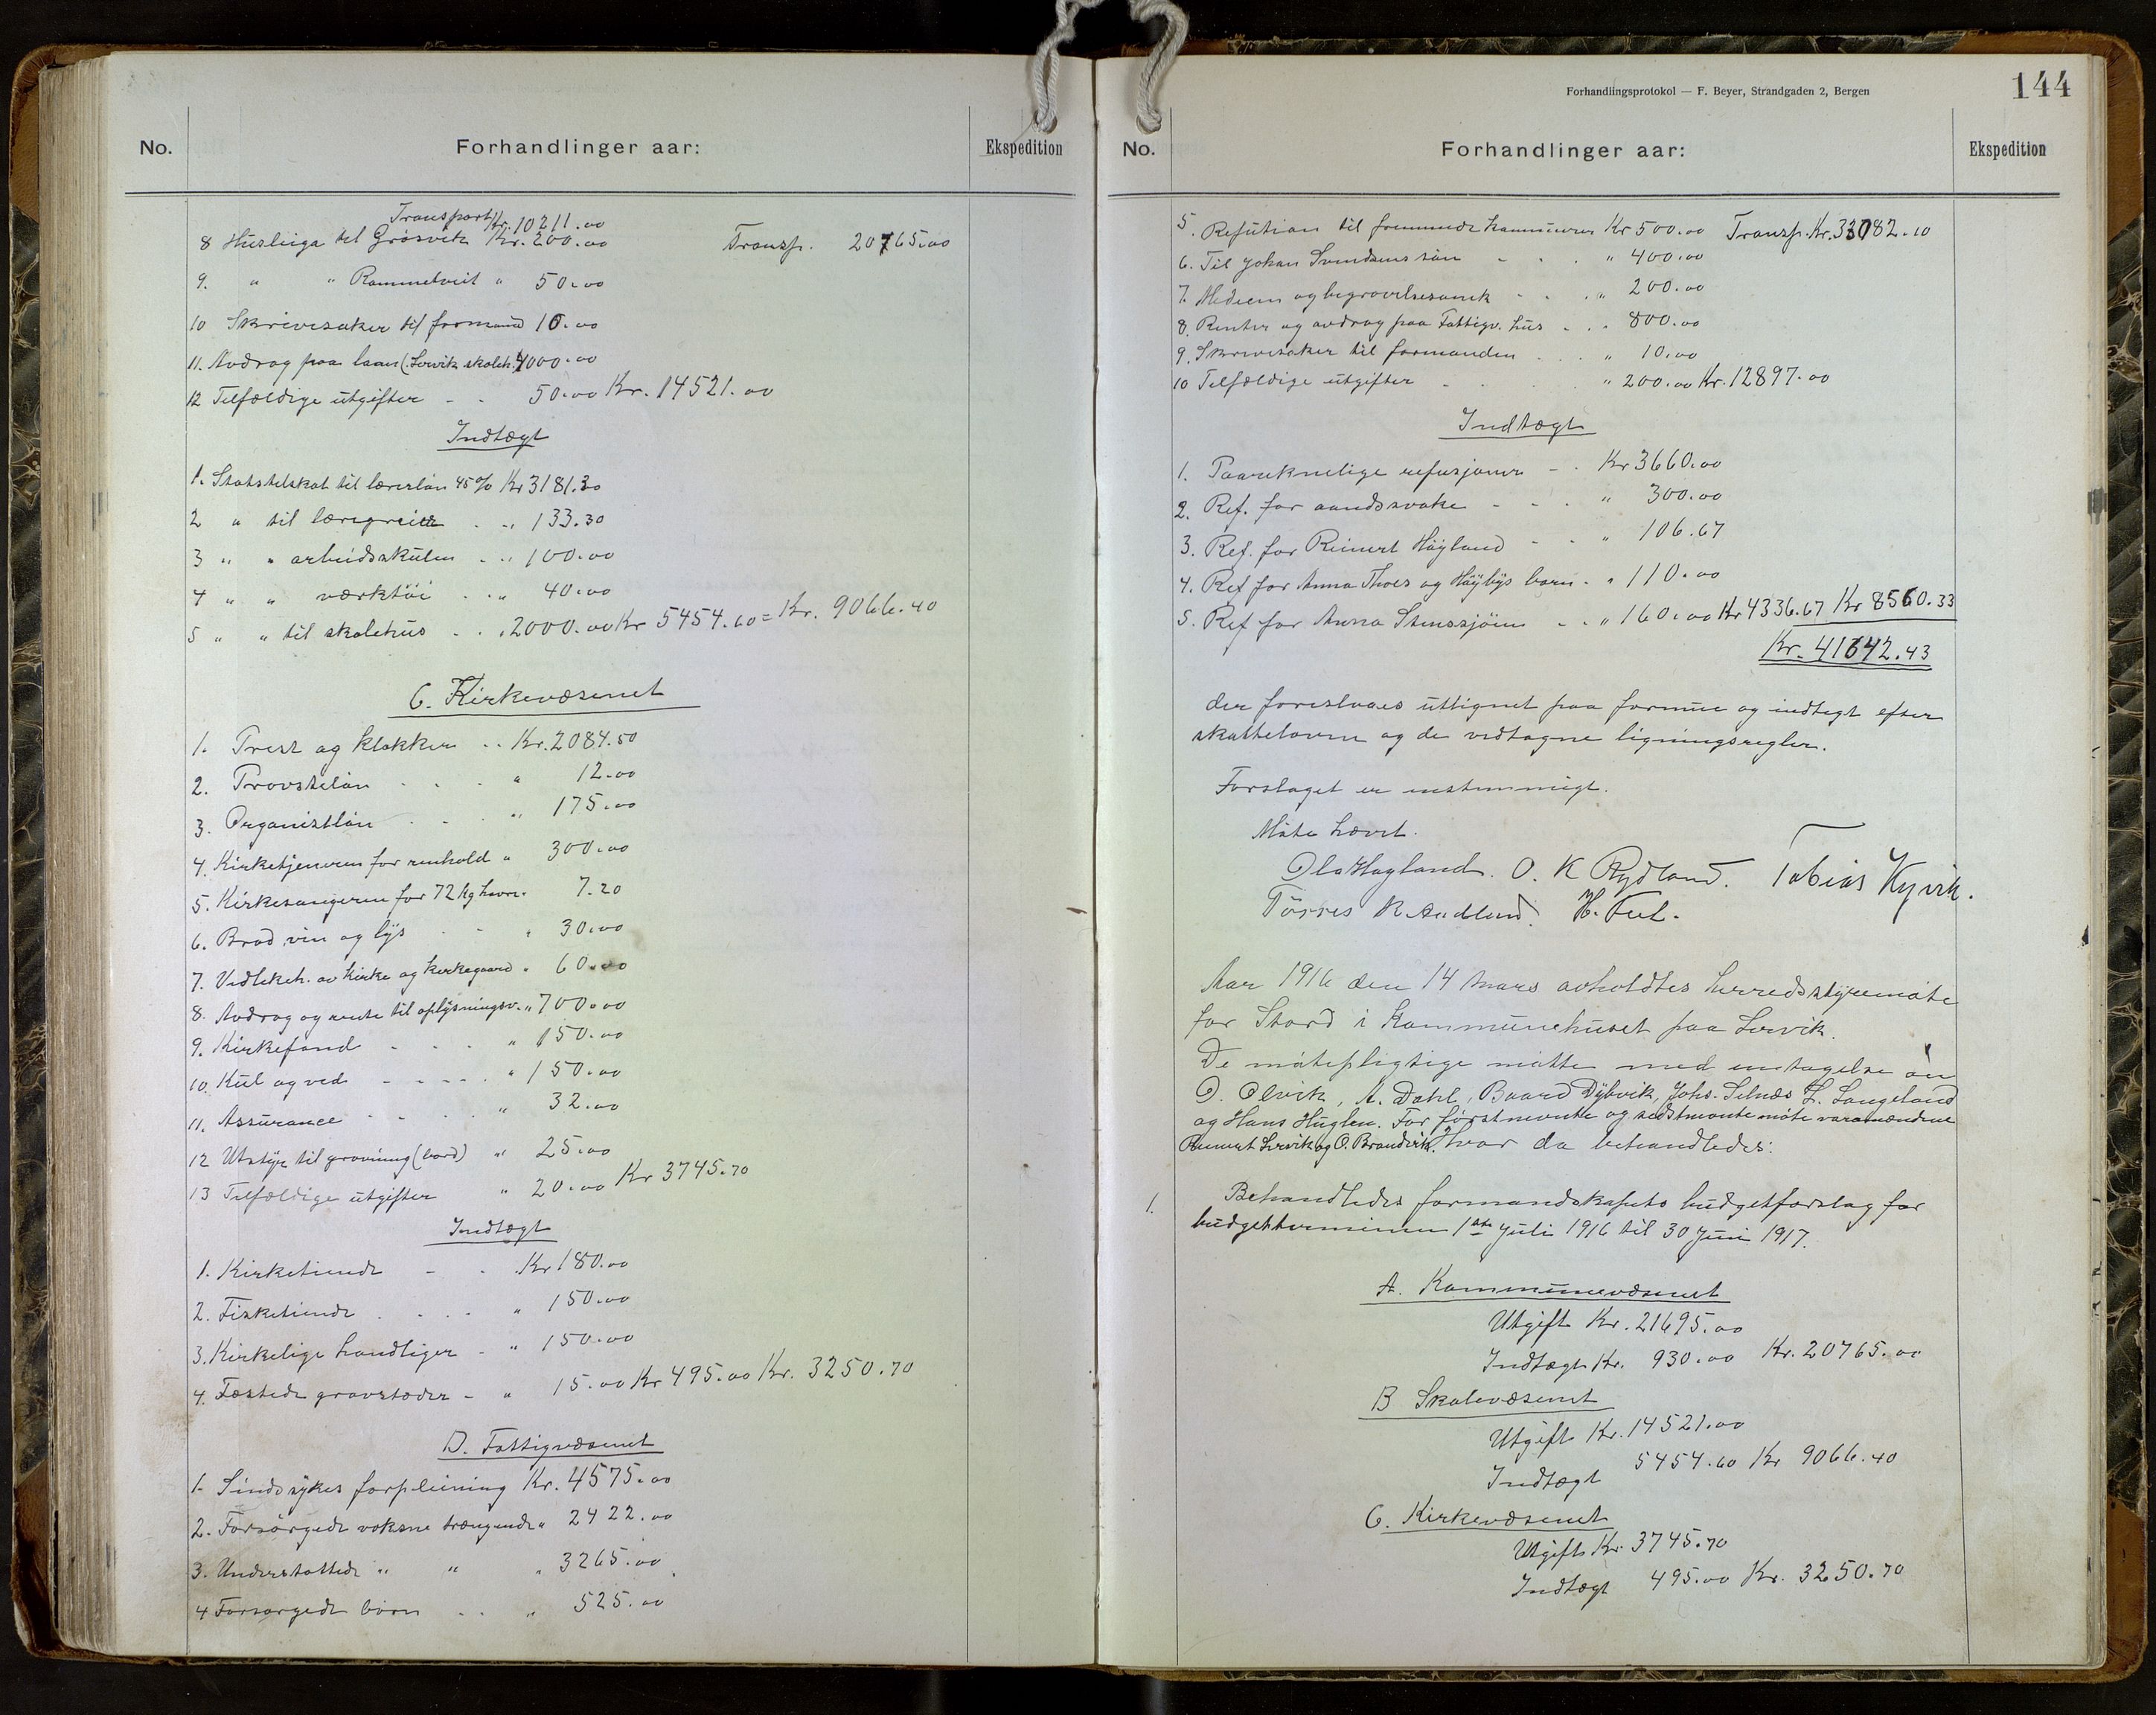 No. Forhandlinger aar: Ekspedition
Transport Kr. 10211.00
8 Husleiga til Grösvik Kr. 200.00 Transp. 20765.00
9. " " Rommetveit " 50.00
10 Skrivesaker til formand 10.00
11. Avdrag paa laan (Lervik skoleh. 4000.00
12 Tilfældige utgifter - - 50.00 Kr. 14521.00
Indtægt
1. Statstilskot til lærerløn 45% Kr 3181.30
2 " til læregreier . " 133.30
3 " " arbeidsskulen . " 100.00
4 " " værktöi . " 40.00
5 " " til skolehus . . " 2000.00 Kr 5454.60 = Kr. 9066.40
C. Kirkevæsenet
1. Prest og klokker . . Kr. 2084.50
2. Provstelön . . . " 12.00
3. Organistlön . . . " 175.00
4. Kirketjeneren for renhold " 300.00
5. Kirkesangeren for 72 kg havre " 7.20
6. Brød, vin og lys . - " 30.00
7. Vedlikeh. av kirke og kirkegaard " 60.00
8. Avdrag og rente til oplysningsv. " 700.00
9. Kirkefond . . . " 150.00
10. Kul og ved - - - - " 150.00
11. Assurance . . . . " 32.00
12 Utstyr til gravning (bord) " 25.00
13 Tilfældige utgifter " 20.00 Kr 3745.70
Indtægt
1. Kirketiende - . Kr 180.00
2. Fisketiende . . . . " 150.00
3. Kirkelige handliger - " 150.00
4. Fæstede gravstæder - " 15.00 Kr 495.00 Kr. 3250.70
D. Fattigvæsenet
1. Sindssykes forpleining Kr. 4575.00
2. Forsörgede voksne trængende " 2422.00
3. Understøttede " " " 3265.00
4 Forsørgede börn . . " 525.00
Forhandlingsprotokol — F. Beyer, Strandgaden 2, Bergen
144
No. Forhandlinger aar: Ekspedition
5. Refusion til fremmede kommuner Kr 500.00 Transp. Kr. 33082.10
6. Til Johan Svendsens sön - . . " 400.00
7. Medecin og begravelsesomk - . . " 200.00
8. Renter og avdrag paa Fattigv. hus . . " 800.00
9. Skrivesaker til formanden . . . " 10.00
10 Tilfældige utgifter - . . . . " 200.00 Kr. 12897.00
Indtægt
1. Paareknelige refusjoner - . Kr 3660.00
2. Ref. for aandssvake - - . " 300.00
3. Ref. for Reinert Höyland - - " 106.67
4. Ref for Anna Thoes og Höybys barn - " 110.00
5. Ref for Anna Stenssjöen - . " 160.00 Kr 4336.67 Kr 8560.33
Kr. 41642.43
der forestaaes utlignet paa formue og indtegt efter
skatteloven og de vedtagne ligningsregler.
Forslaget er enstemmigt.
Möte hævet.
Ola Hogland. O. K Rydland. Tobias Kyvik.
Törres R. Aadland. H. Tul.
Aar 1916 den 14 mars avholdtes herredsstyremöte
for Stord i kommunehuset paa Lervik.
De mötepligtige mötte med untagelse av
O. Olvik, A. Dahl, Baard Dybvik, Johs. Selnæs L. Langeland
og Hans Huglen. For förstnevnte og sidstnevnte möte varamændene
Reinert Lervik og O. Brandvik. Hvor da behandledes:
1. Behandledes formandskapets budgetforslag for
budgetterminen 1ste juli 1916 til 30 juni 1917.
A. Kommunevæsenet
Utgift Kr. 21695.00
Indtægt Kr. 930.00 Kr. 20765.00
B Skolevæsenet
Utgift Kr. 14521.00
Indtægt 5454.60 Kr 9066.40
C. Kirkevæsenet
Utgift Kr. 3745.70
Indtægt 495.00 Kr. 3250.70